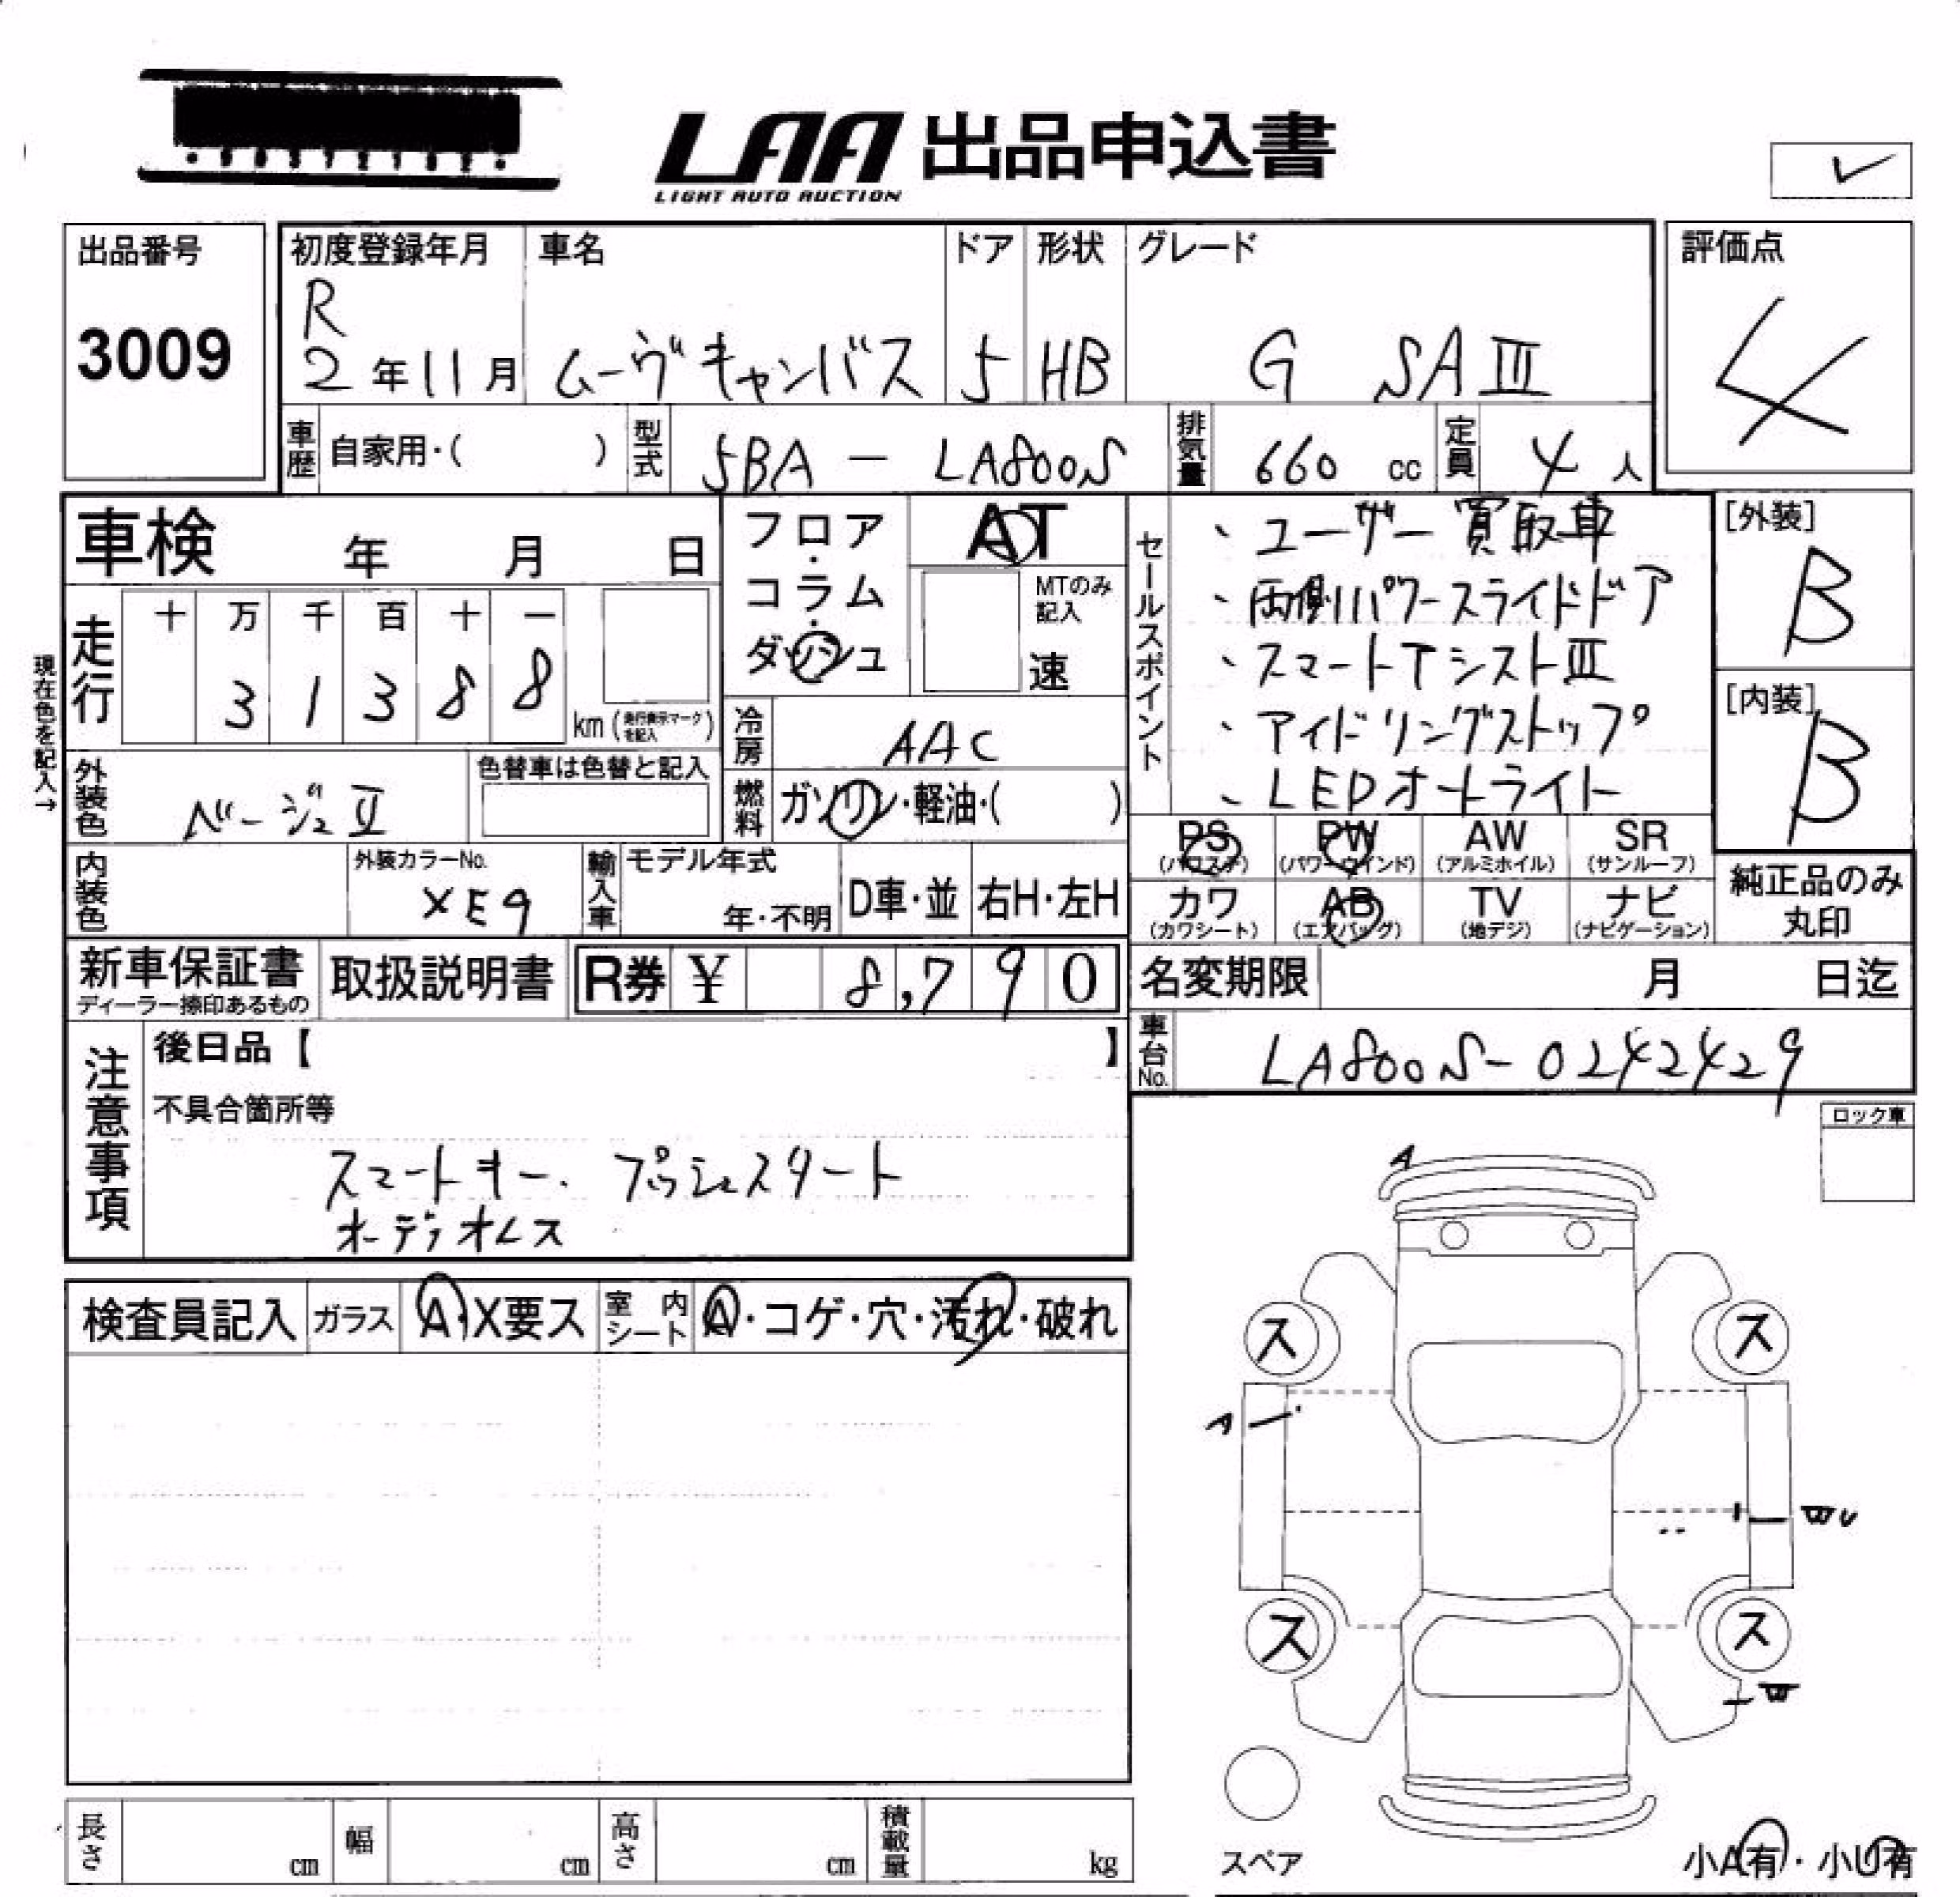 LAA 出品申込書
LIGHT AUTO AUCTION
出品番号
3009
初度登録年月
R
2年11月
車名
ムーヴキャンバス
ドア
5
形状
HB
グレード
G SAⅢ
評価点
4
車歴
自家用・( )
型式
5BA - LA800S
排気量
660 cc
定員
4人
車検 年 月 日
フロア・コラム・ダッシュ
AT
MTのみ記入
速
セールスポイント
、ユーザー買取車
、両側パワースライドドア
、スマートアシストⅢ
、アイドリングストップ
、LEDオートライト
[外装]
B
[内装]
B
現在色を記入→
走行
十 万 千 百 十 一
3 1 3 8 8
km(走行表示マークを記入)
冷房
AAC
外装色
ベージュⅡ
色替車は色替と記入
燃料
ガソリン・軽油・( )
PS
(パワステ)
PW
(パワーウインド)
AW
(アルミホイル)
SR
(サンルーフ)
カワ
(カワシート)
AB
(エアバッグ)
TV
(地デジ)
ナビ
(ナビゲーション)
純正品のみ
丸印
内装色
外装カラーNo.
XE9
輸入車
モデル年式
年・不明
D車・並
右H・左H
新車保証書
ディーラー捺印あるもの
取扱説明書
R券 ¥ 8,790
名変期限 月 日迄
車台No.
LA800S-0242429
注意事項
後日品【 】
不具合箇所等
スマートキー、プッシュスタート
オーディオレス
ロック車
検査員記入
ガラス
A・X要ス
室内シート
A・コゲ・穴・汚れ・破れ
A
ス
ス
A
WU
ス
ス
W
スペア
小A有・小U有
長さ cm
幅 cm
高さ cm
積載量 kg